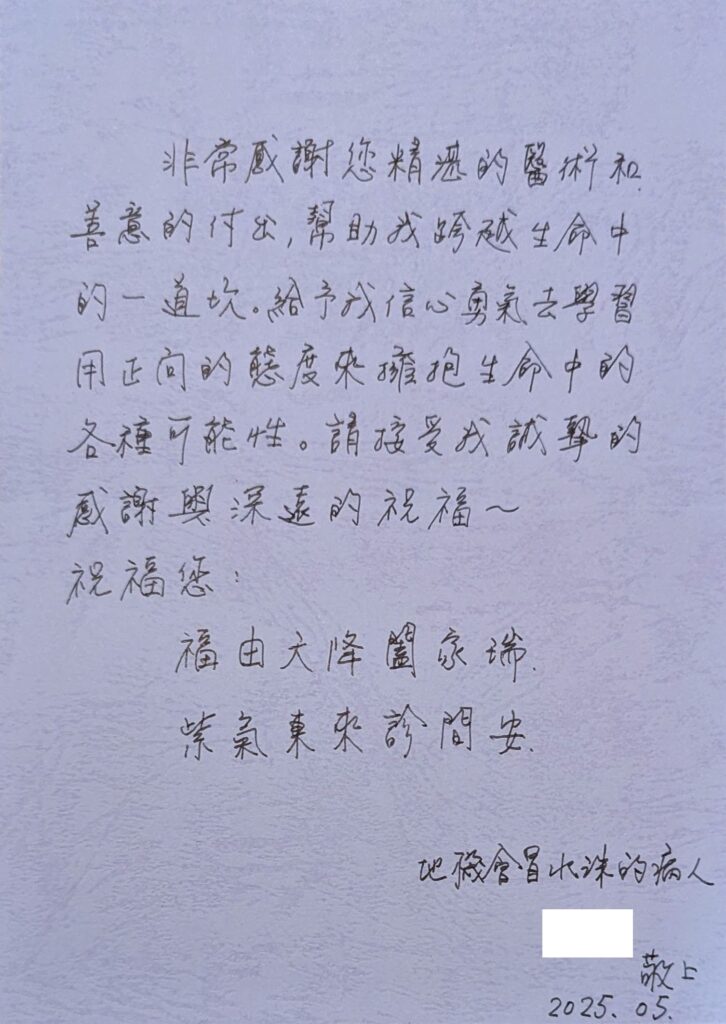 非常感謝您精湛的醫術和
善意的付出,幫助我跨越生命中
的一道坎。給予我信心勇氣去學習
用正向的態度來擁抱生命中的
各種可能性。請接受我誠摯的
感謝與深遠的祝福～
祝福您:
福由天降闔家瑞.
紫氣東來診間安.
地機會冒水珠的病人
敬上
2025.05.